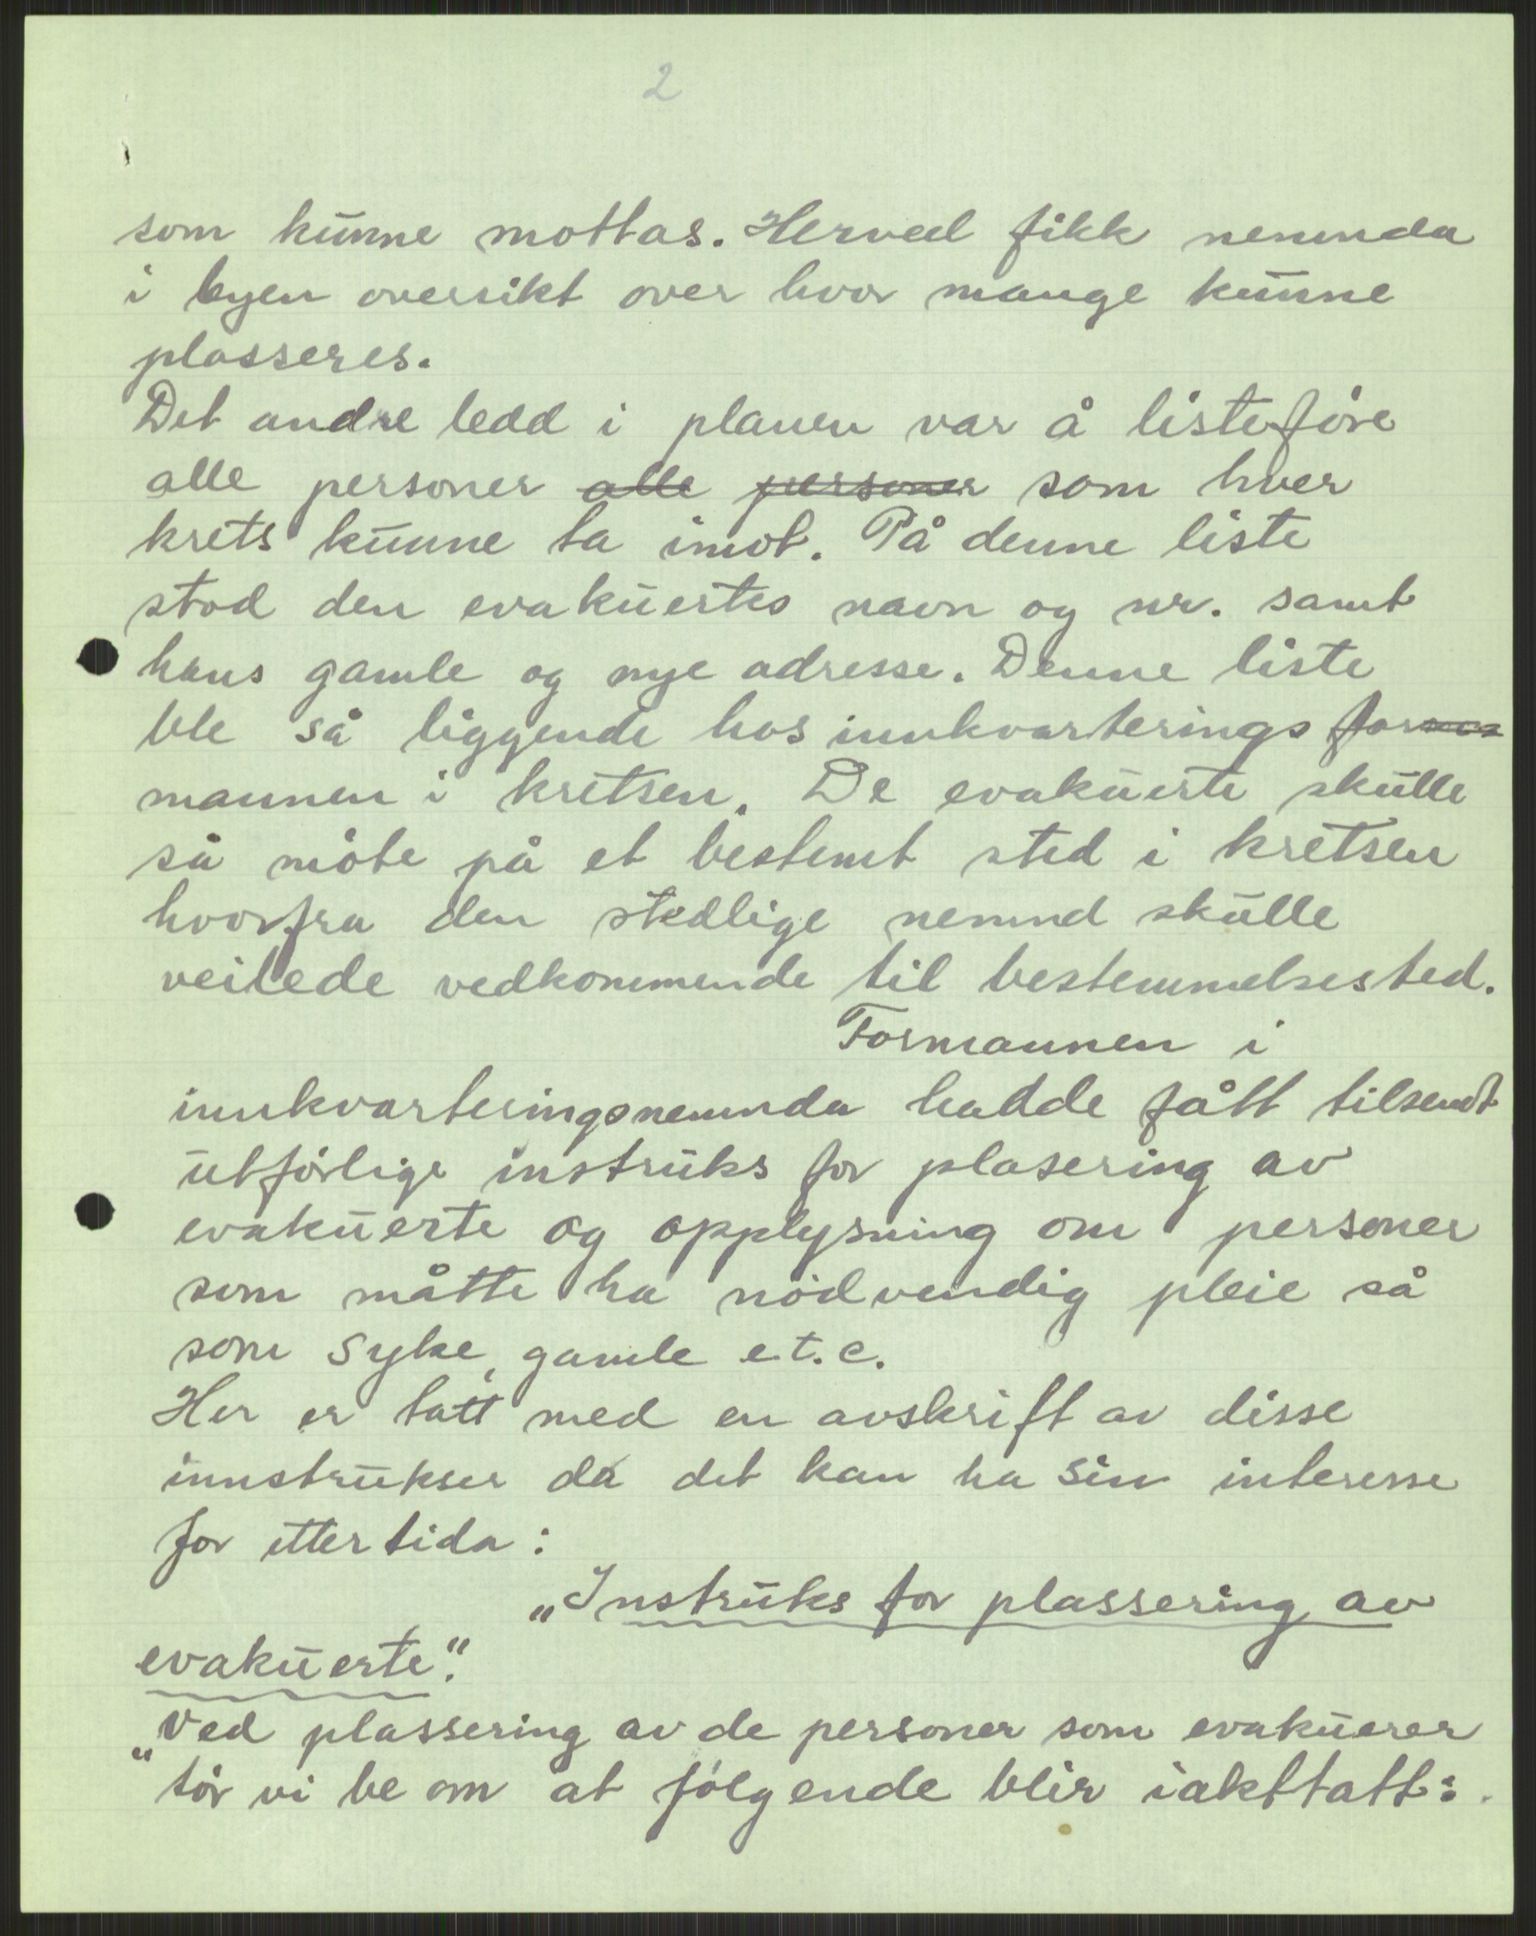 2
som kunne mottas. Herved fikk nemnda
i byen oversikt over hvor mange kunne
plasseres.
Det andre ledd i planen var å listeføre
alle personer alle personer som hver
krets kunne ta imot. På denne liste
stod den evakuertes navn og nr. samt
hans gamle og nye adresse. Denne liste
ble så liggende hos innkvarterings
mannen i kretsen. De evakuerte skulle
så møte på et bestemt sted i kretsen
hvorfra den stedlige nemnd skulle
veilede vedkommende til bestemmelsessted.
Formannen i
innkvarteringsnemnda hadde fått tilsendt
utførlige instruks for plasering av
evakuerte og opplysning om personer
som måtte ha nødvendig pleie så
som syke, gamle e.t.c.
Her er tatt med en avskrift av disse
innstrukser da det kan ha sin interesse
for ettertida:
„Instruks for plassering av
evakuerte".
„Ved plassering av de personer som evakuerer
tør vi be om at følgende blir iakttatt: